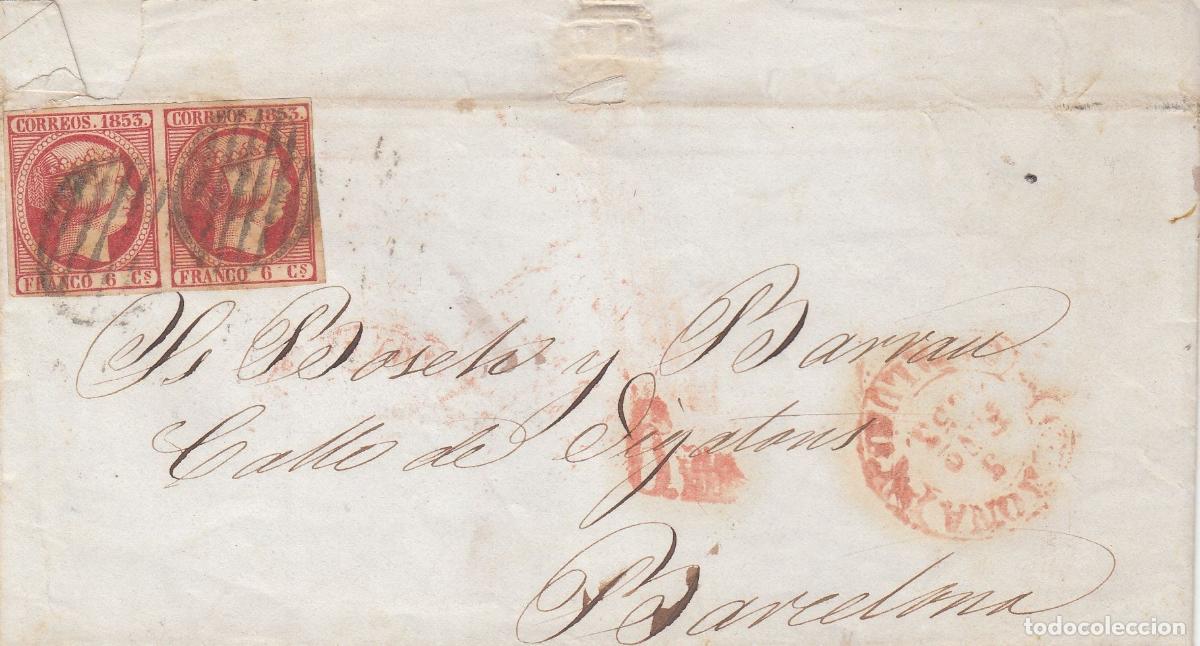 CORREOS. 1853.
FRANCO 6 Cs
CORREOS. 1853.
FRANCO 6 Cs
Ss Boseh y Barrau
Calle de Gigatons
Barcelona
todocoleccion